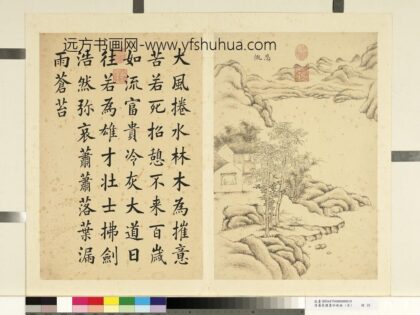 远方书画网-www.yfshuhua.com
悲慨
大風捲水林木為摧意
苦若死招憩不來百歲
如流富貴冷灰大道日
往若為雄才壯士拂劍
浩然弥哀蕭蕭落葉漏
雨蒼苔